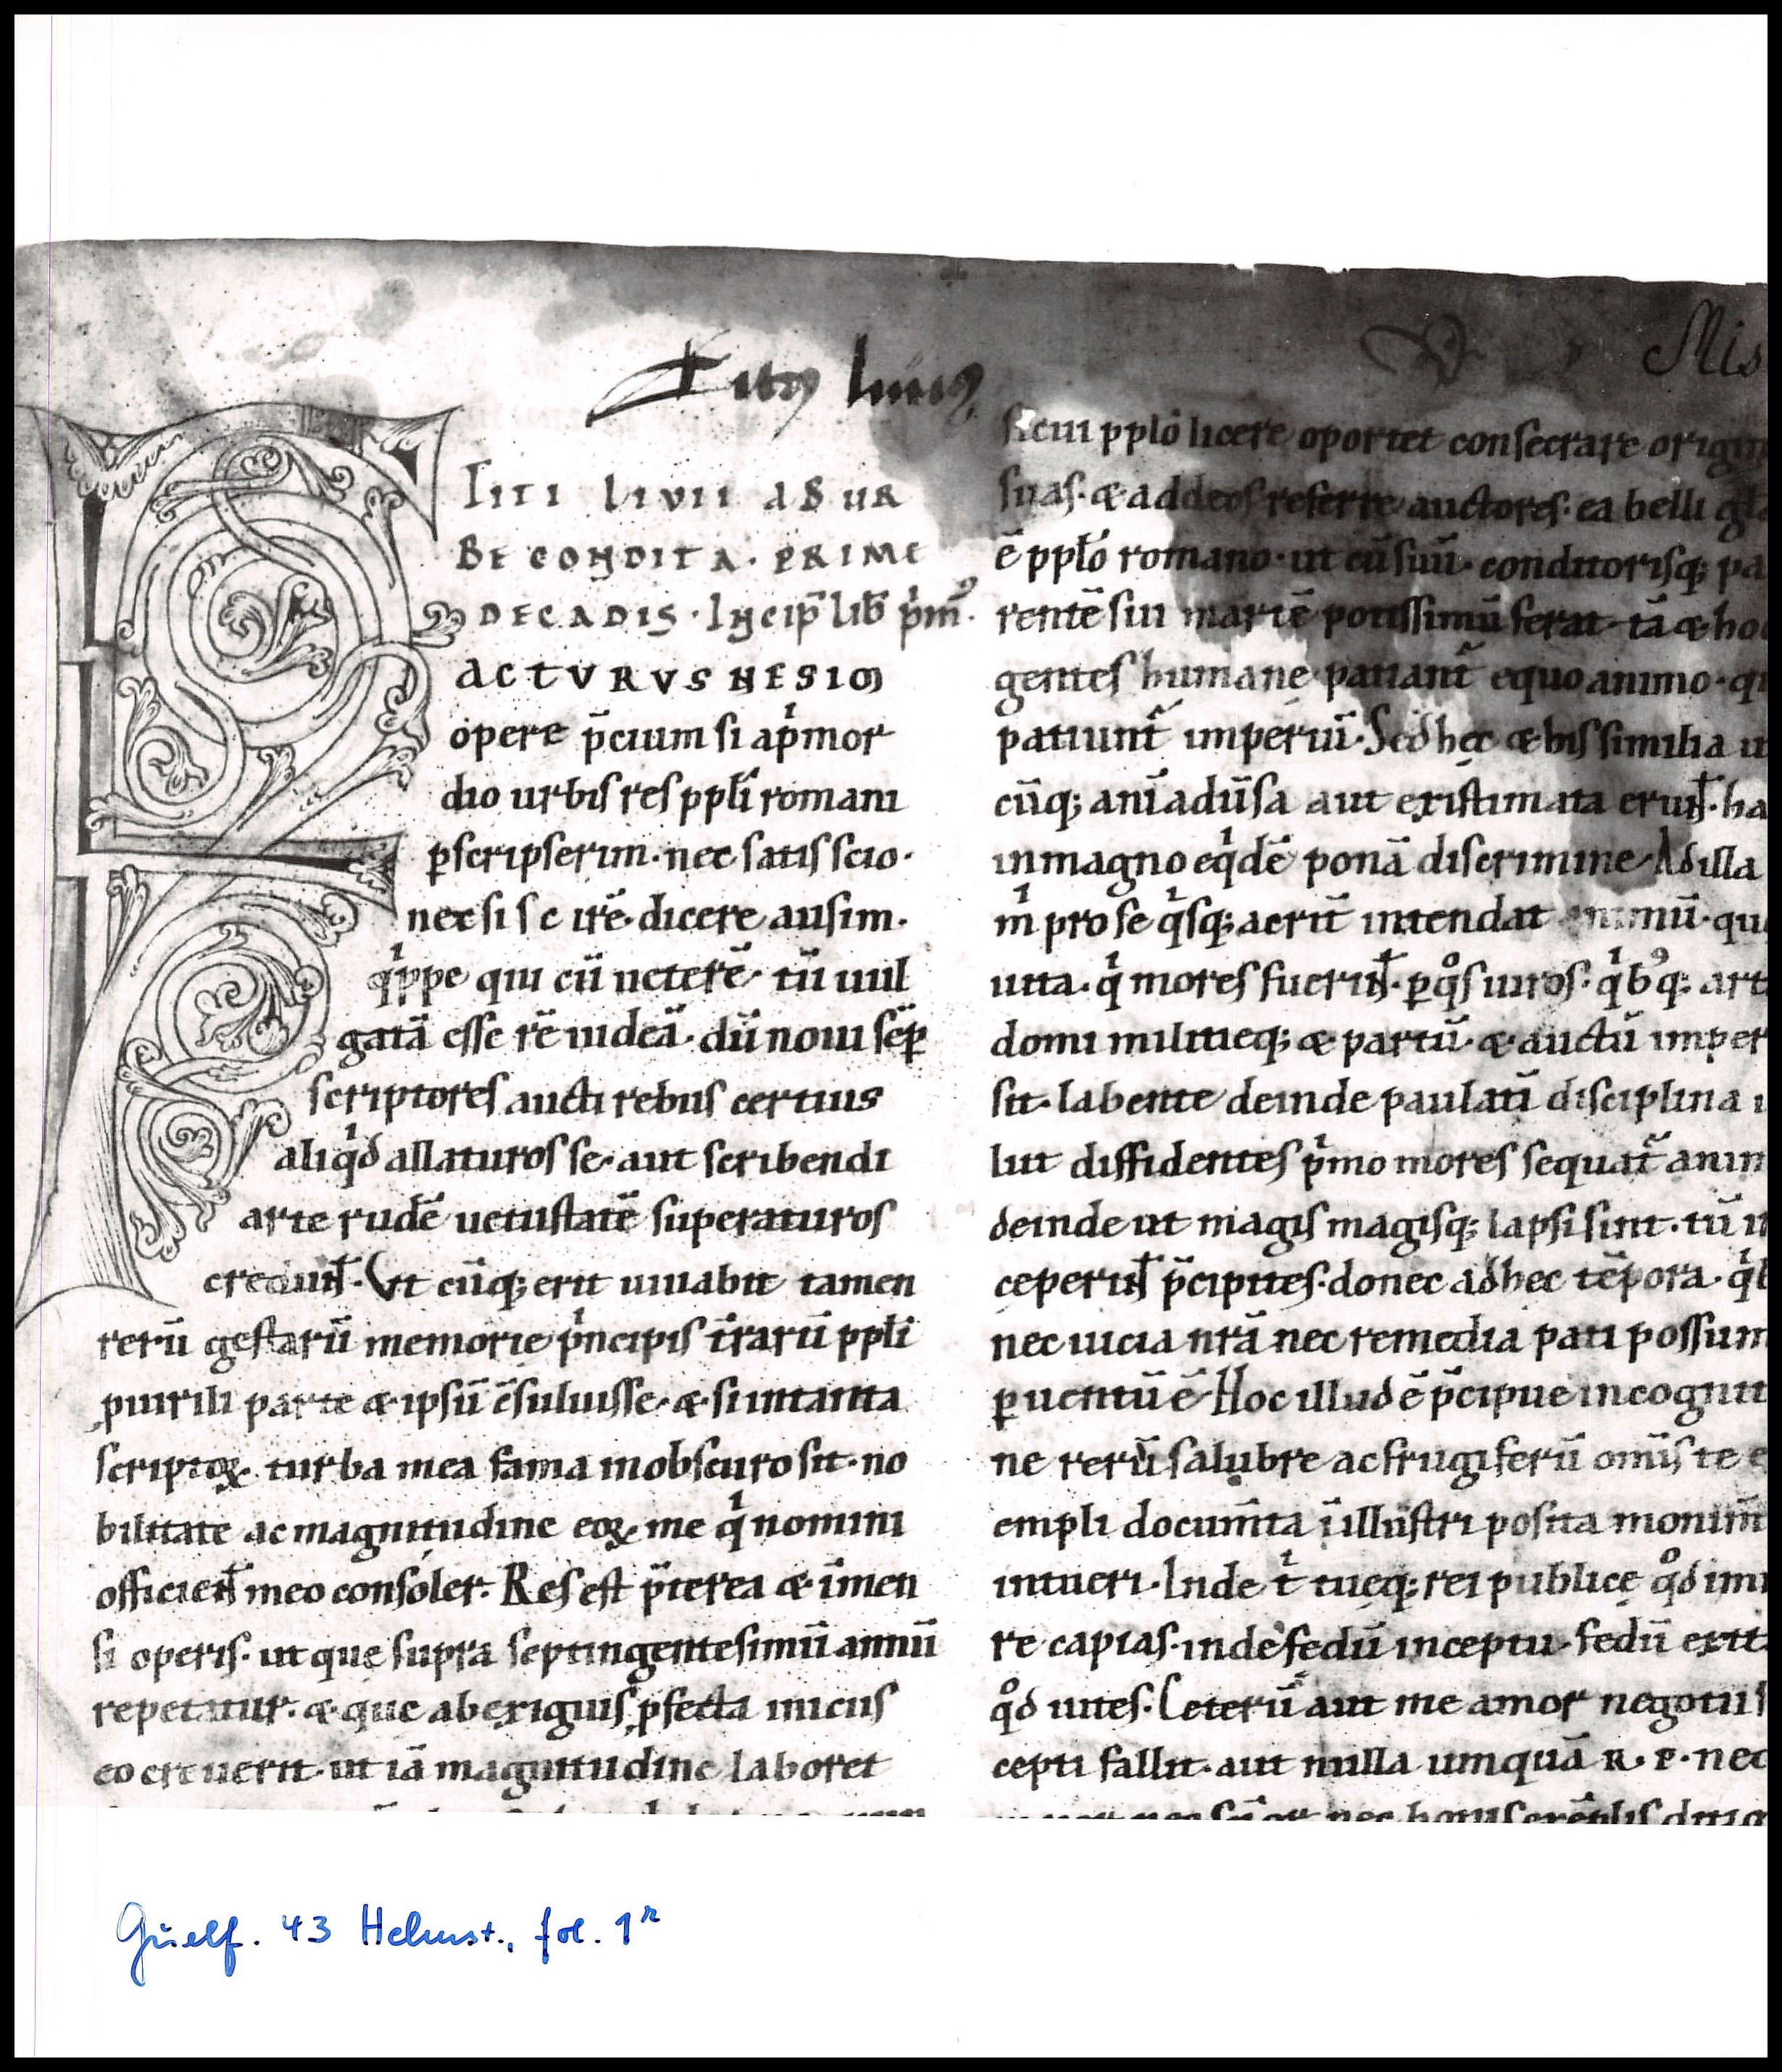 Titꝯ liuiꝯ
Mis
TITI LIVII AB UR
BE CONDITA. PRIME
DECADIS. Incip̄ lib̄ pͥmꝰ.
ACTURUS NE SIM
opere p̄cium si a pͥmor
dio urbis res ppl̄i romani
ꝑscripserim. nec satis scio.
nec si scirē. dicere ausim.
qͥppe qui cū ueterē. tū uul
gatā esse rē uideā. dū noui sēꝑ
scriptores aut i rebus certius
aliqͥd allaturos se. aut scribendi
arte rudē uetustatē superaturos
credun̄t. Vt cūq; erit iuuabit tamen
rerū gestarū memorie pͥncipis t̄rarū ppl̄i
ꝓ uirili parte & ipsū c̄suluisse. & si in tanta
scriptoꝝ turba mea fama in obscuro sit. no
bilitate ac magnitudine eoꝝ me qͥ nomini
officien̄t meo consoler. Res est p̄terea & im̄en
si operis. ut que supra septingentesimū annū
repetatur. & que ab exiguis ꝓfecta iniciis
eo creuerit. ut iā magnitudine laboret
sicui pplō licere oportet consecrare origin
suas. & ad deos referre auctores. ea belli gla
ē pplō romano. ut cū suū. conditorisq; pa
rentē sui martē potissimū ferat. tā & hoc
gentes humane patiant̄ equo animo. qͣ
patiunt̄ imperiū. Sed hec & his similia ut
cūq; anīadūsa aut existimata erun̄t. ha
in magno eqͥdē ponā discrimine. Ad illa
mͥ pro se qͥsq; acrit̄ intendat animū. que
uita. qͥ mores fuerin̄t. ꝑ qͦs uiros. qͥbꝰq; art
domi militieq; & partū. & auctū imper
sit. labente deinde paulatī disciplina u
lut diffidentes pͥmo mores sequat̄ anim
deinde ut magis magisq; lapsi sint. tū ir
ceperin̄t p̄cipites. donec ad hec tēpora. qͥb
nec uicia nr̄a nec remedia pati possum
ꝑuentū ē. Hoc illud ē p̄cipue in cognit
ne rerū salubre ac frugiferū omīs te e
empli docum̄ta ī illustri posita monim̄
intueri. Inde tͥ tueq; rei publicę qͦd imi
re capias. inde fedū inceptu. fedū exit
qͦd uites. Ceterū aut me amor negotii s
cepti fallit. aut nulla umquā R. P. nec
Guelf. 43 Helmst., fol. 1r